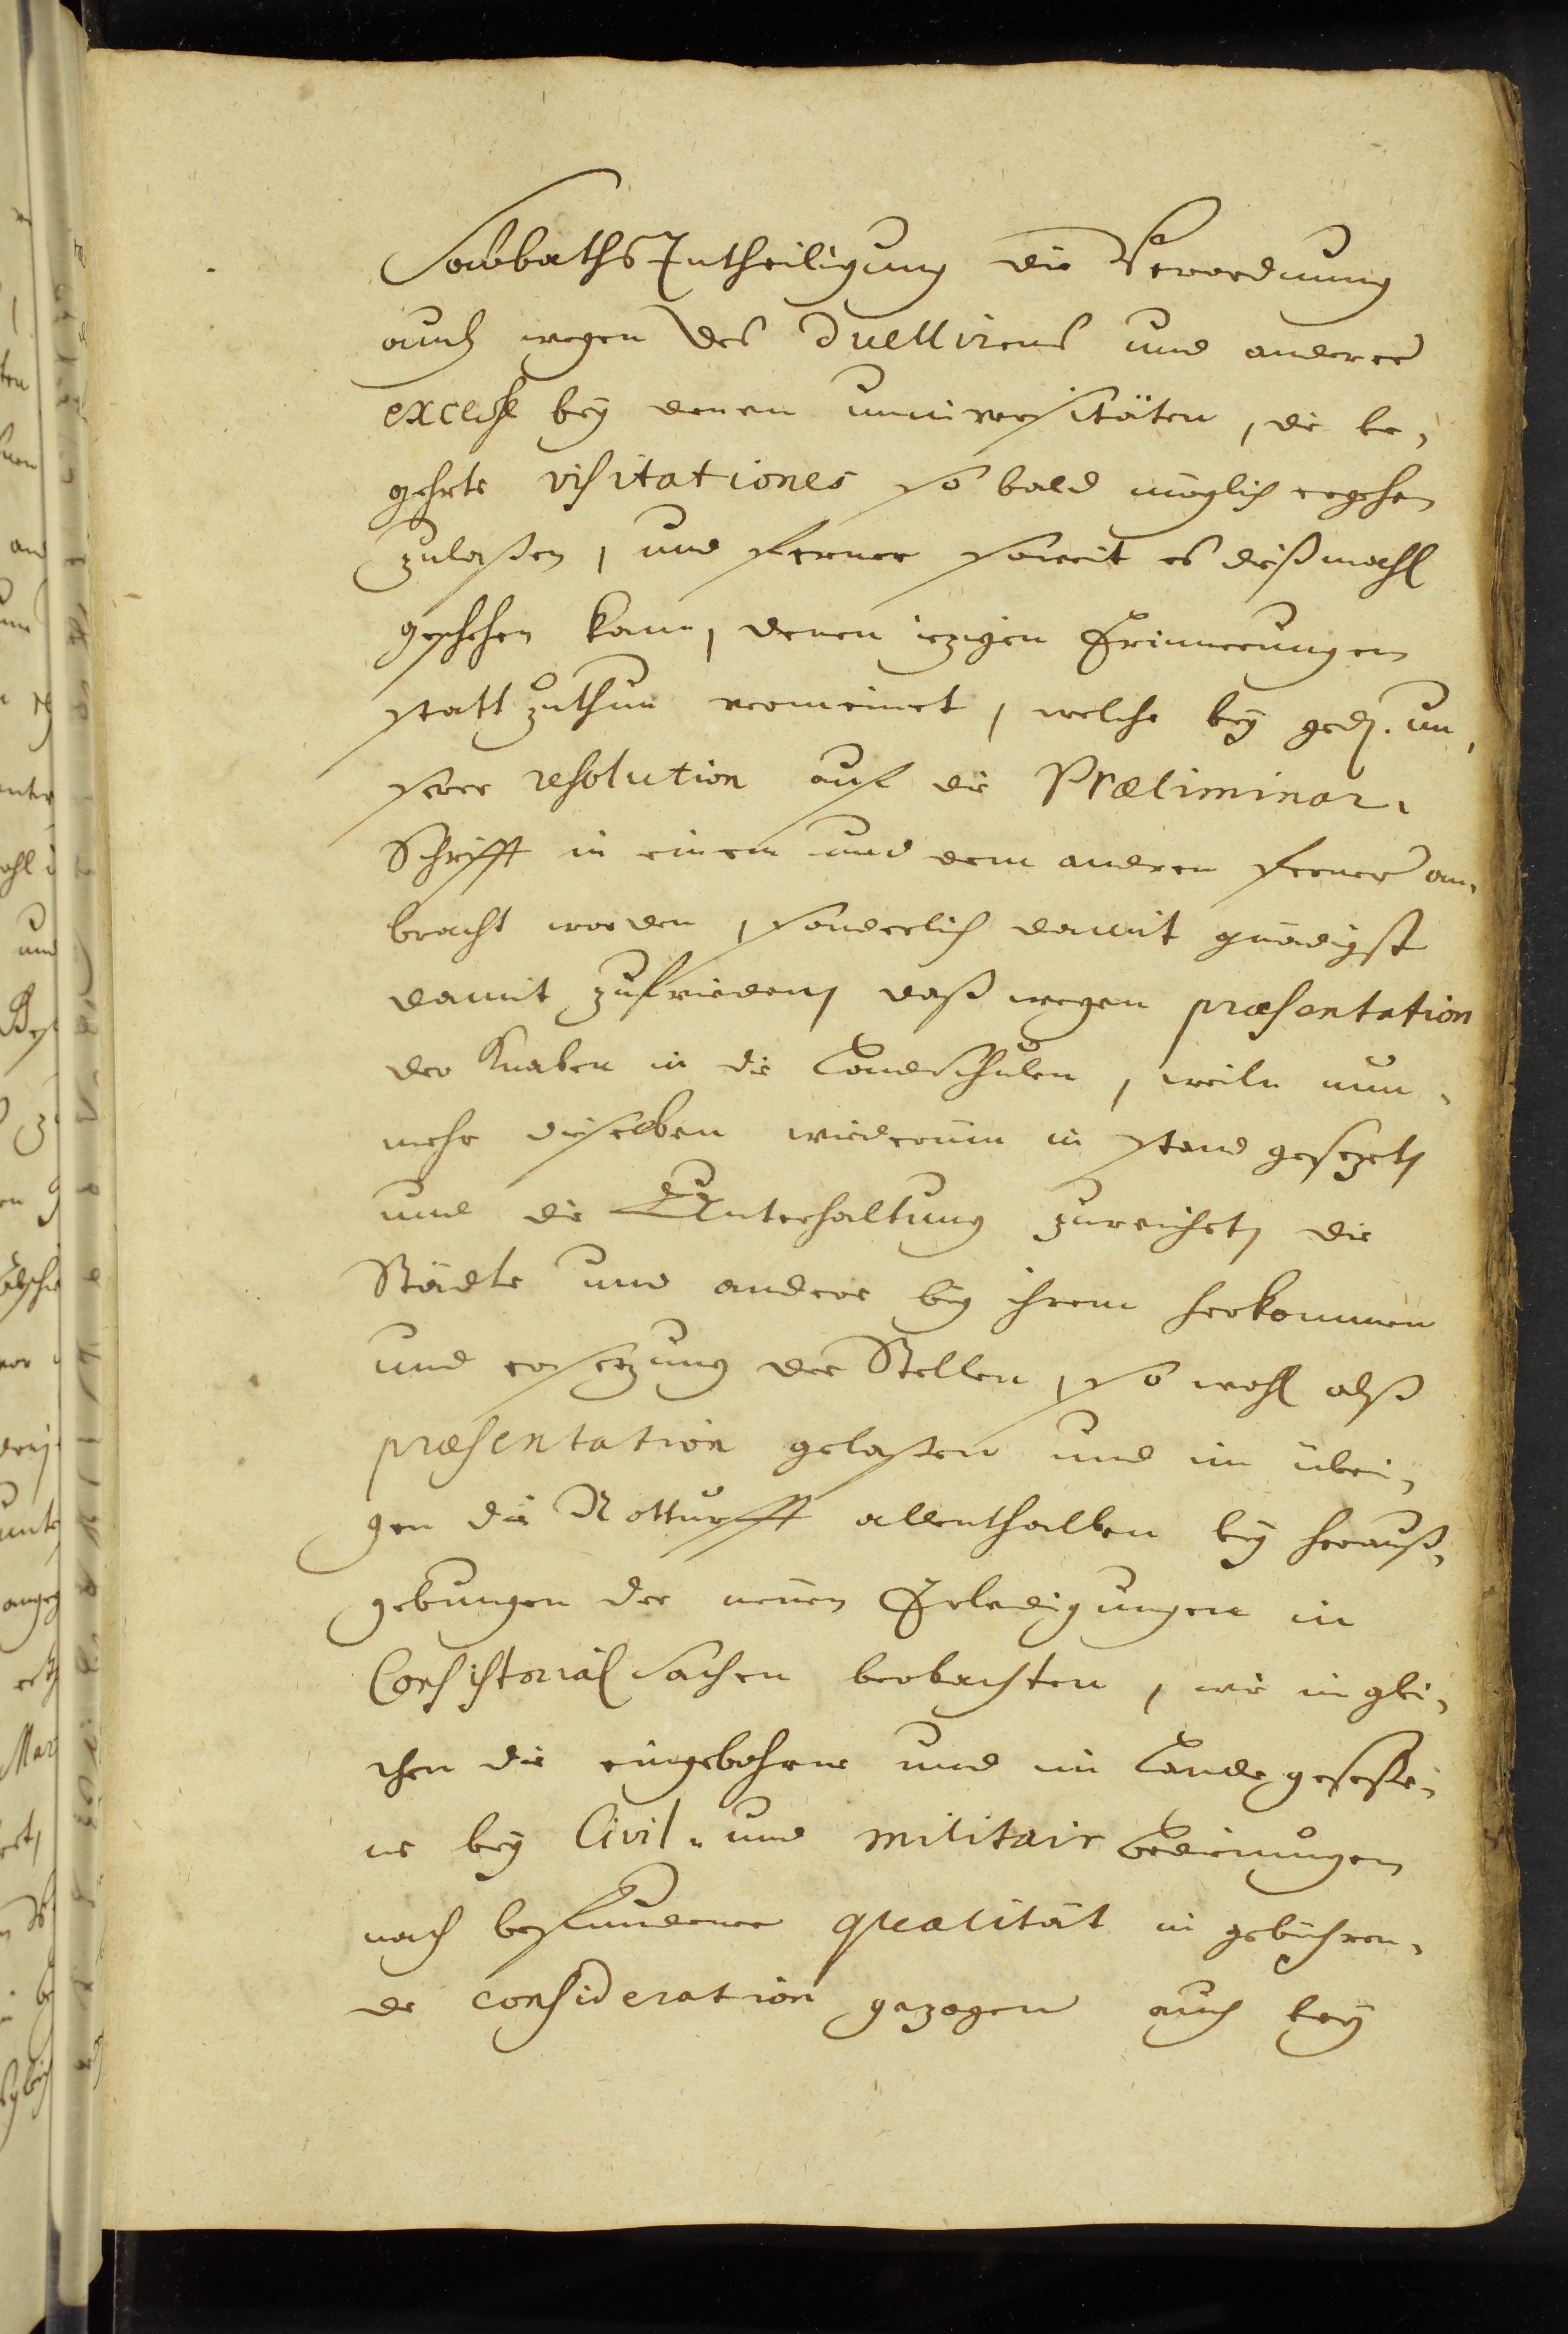 SabbathsEntheiligung die Verordnung
auch wegen des Duellirens und anderer
excesse bey denen universitäten, die be,
gehrte visitationes so bald möglich ergehen
zulaßen, und ferner soweit es dießmahl
geschehen kann, denen iezigen Erinnerungen
statt zuthun vermeinet, welche bey ged. un,
serer resolution auf die Præliminar,
Schrifft in einem und dem andern ferner an,
bracht worden, sonderlich damit gnädigst
damit zufrieden, daß wegen præsentation
der Knaben in die Landschulen, weiln nun,
mehr dieselben wiederum in stand gesezet,
und die Unterhaltung zureichet, die
Städte und andere bey ihrem herkommen
und ersezung der Stellen, so wohl alß
præsentation gelaßen und im übri,
gen die Notturfft allenthalben bey herauß,
gebungen der neuen Erledigungen in
Consistorial sachen beobachten, wie inglei,
chen die eingebohrne und im Lande geseße,
ne bey Civil- und militair bedienungen
nach befundener qualität in gebühren,
de consideration gezogen auch bey